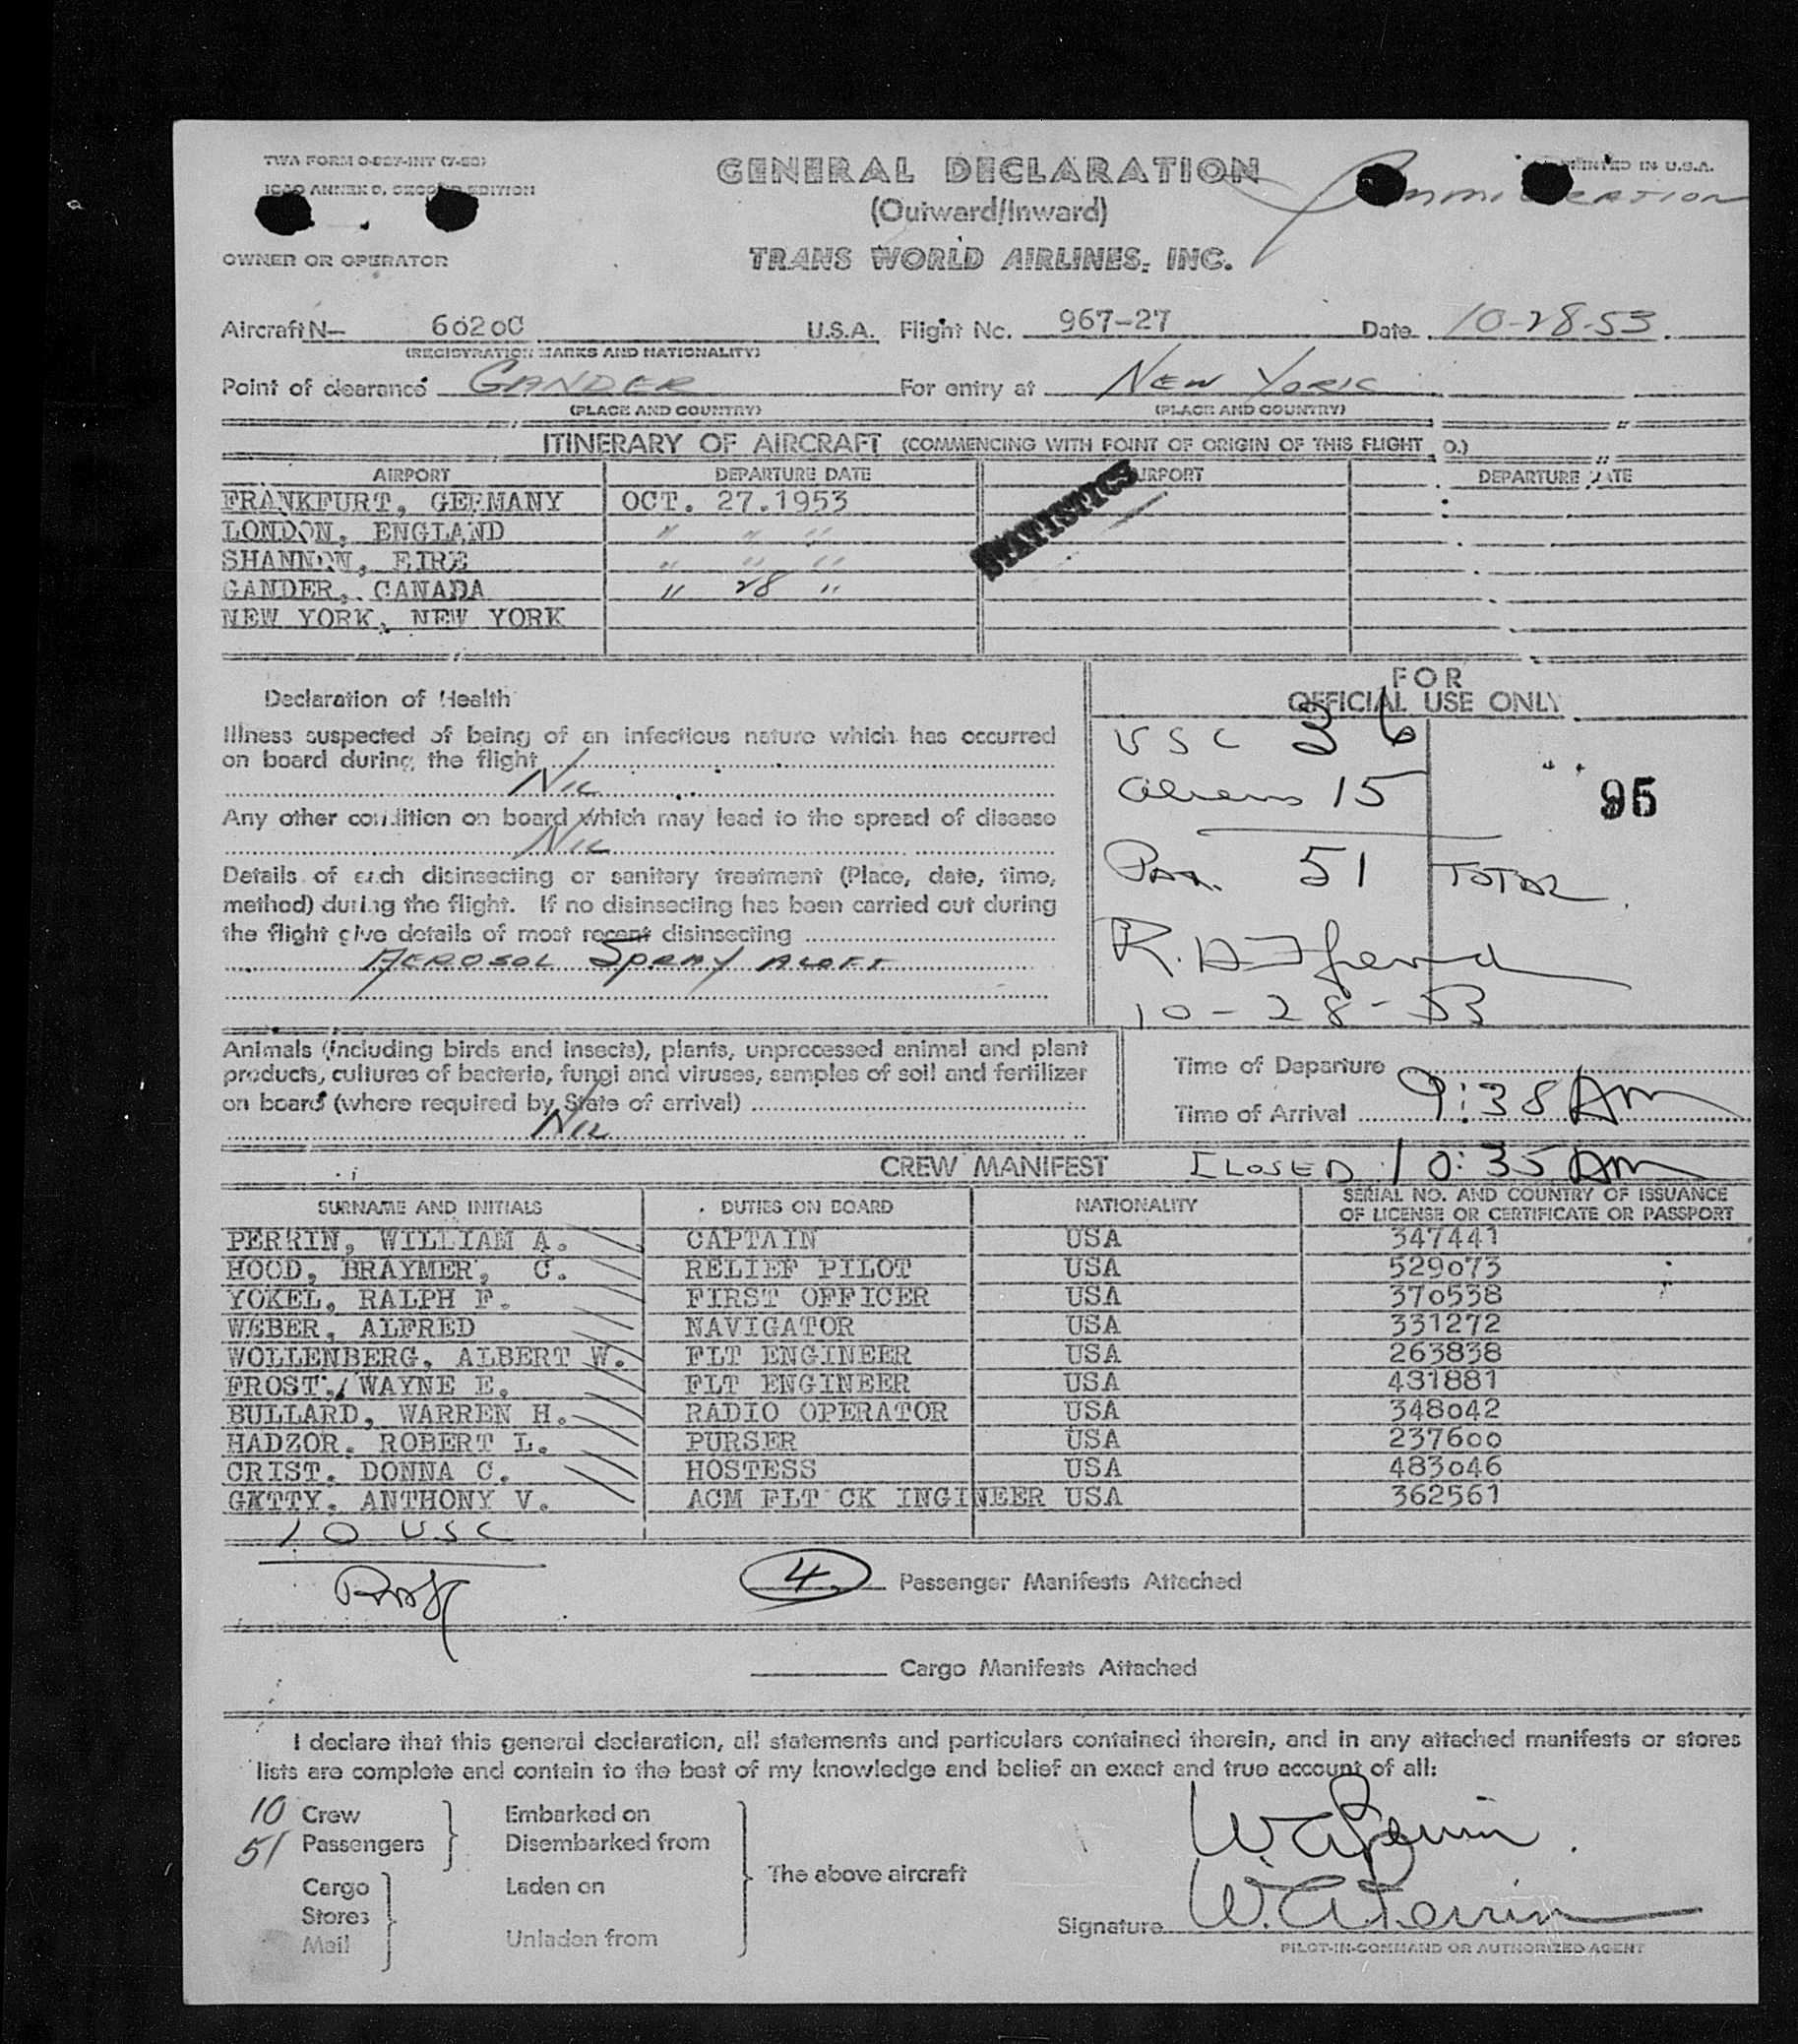 TWA FORM O-527-INT (7-53)
GENERAL DECLARATION
PRINTED IN U.S.A.
ICAO ANNEX 9, SECOND EDITION
(Outward/Inward)
OWNER OR OPERATOR
TRANS WORLD AIRLINES, INC.
Aircraft N— 6020C U.S.A. Flight No. 967-27 Date 10-28-53
(REGISTRATION MARKS AND NATIONALITY)
Point of clearance GANDER For entry at NEW YORK
(PLACE AND COUNTRY) (PLACE AND COUNTRY)
ITINERARY OF AIRCRAFT (COMMENCING WITH POINT OF ORIGIN OF THIS FLIGHT O.)
AIRPORT DEPARTURE DATE AIRPORT DEPARTURE DATE
FRANKFURT, GERMANY OCT. 27.1953
STATISTICS
LONDON, ENGLAND " " "
SHANNON, EIRE " " "
GANDER, CANADA " 28 "
NEW YORK, NEW YORK
FOR
OFFICIAL USE ONLY
Declaration of Health
Illness suspected of being of an infectious nature which has occurred
on board during the flight
Nil
Any other condition on board which may lead to the spread of disease
Nil
Details of each disinsecting or sanitary treatment (Place, date, time,
method) during the flight. If no disinsecting has been carried out during
the flight give details of most recent disinsecting
AEROSOL SPRAY ALOFT
USC 36
Aliens 15
95
Pax. 51 TOTAL
10-28-53
Animals (including birds and insects), plants, unprocessed animal and plant
products, cultures of bacteria, fungi and viruses, samples of soil and fertilizer
on board (where required by State of arrival)
Nil
Time of Departure
Time of Arrival 9:38 AM
CREW MANIFEST CLOSED 10:35 AM
SURNAME AND INITIALS DUTIES ON BOARD NATIONALITY SERIAL NO. AND COUNTRY OF ISSUANCE
OF LICENSE OR CERTIFICATE OR PASSPORT
PERRIN, WILLIAM A. CAPTAIN USA 347441
HOOD, BRAYMER, C. RELIEF PILOT USA 529073
YOKEL, RALPH F. FIRST OFFICER USA 370538
WEBER, ALFRED NAVIGATOR USA 331272
WOLLENBERG, ALBERT W. FLT ENGINEER USA 263838
FROST, WAYNE E. FLT ENGINEER USA 431881
BULLARD, WARREN H. RADIO OPERATOR USA 348042
HADZOR. ROBERT L. PURSER USA 237600
CRIST. DONNA C. HOSTESS USA 483046
GETTY, ANTHONY V. ACM FLT CK INGINEER USA 362561
10 USC
4 Passenger Manifests Attached
Cargo Manifests Attached
I declare that this general declaration, all statements and particulars contained therein, and in any attached manifests or stores
lists are complete and contain to the best of my knowledge and belief an exact and true account of all:
10 Crew Embarked on
51 Passengers Disembarked from
The above aircraft
Cargo Laden on
Stores
Mail Unladen from
W. A. Perrin
Signature W. A. Perrin
PILOT-IN-COMMAND OR AUTHORIZED AGENT